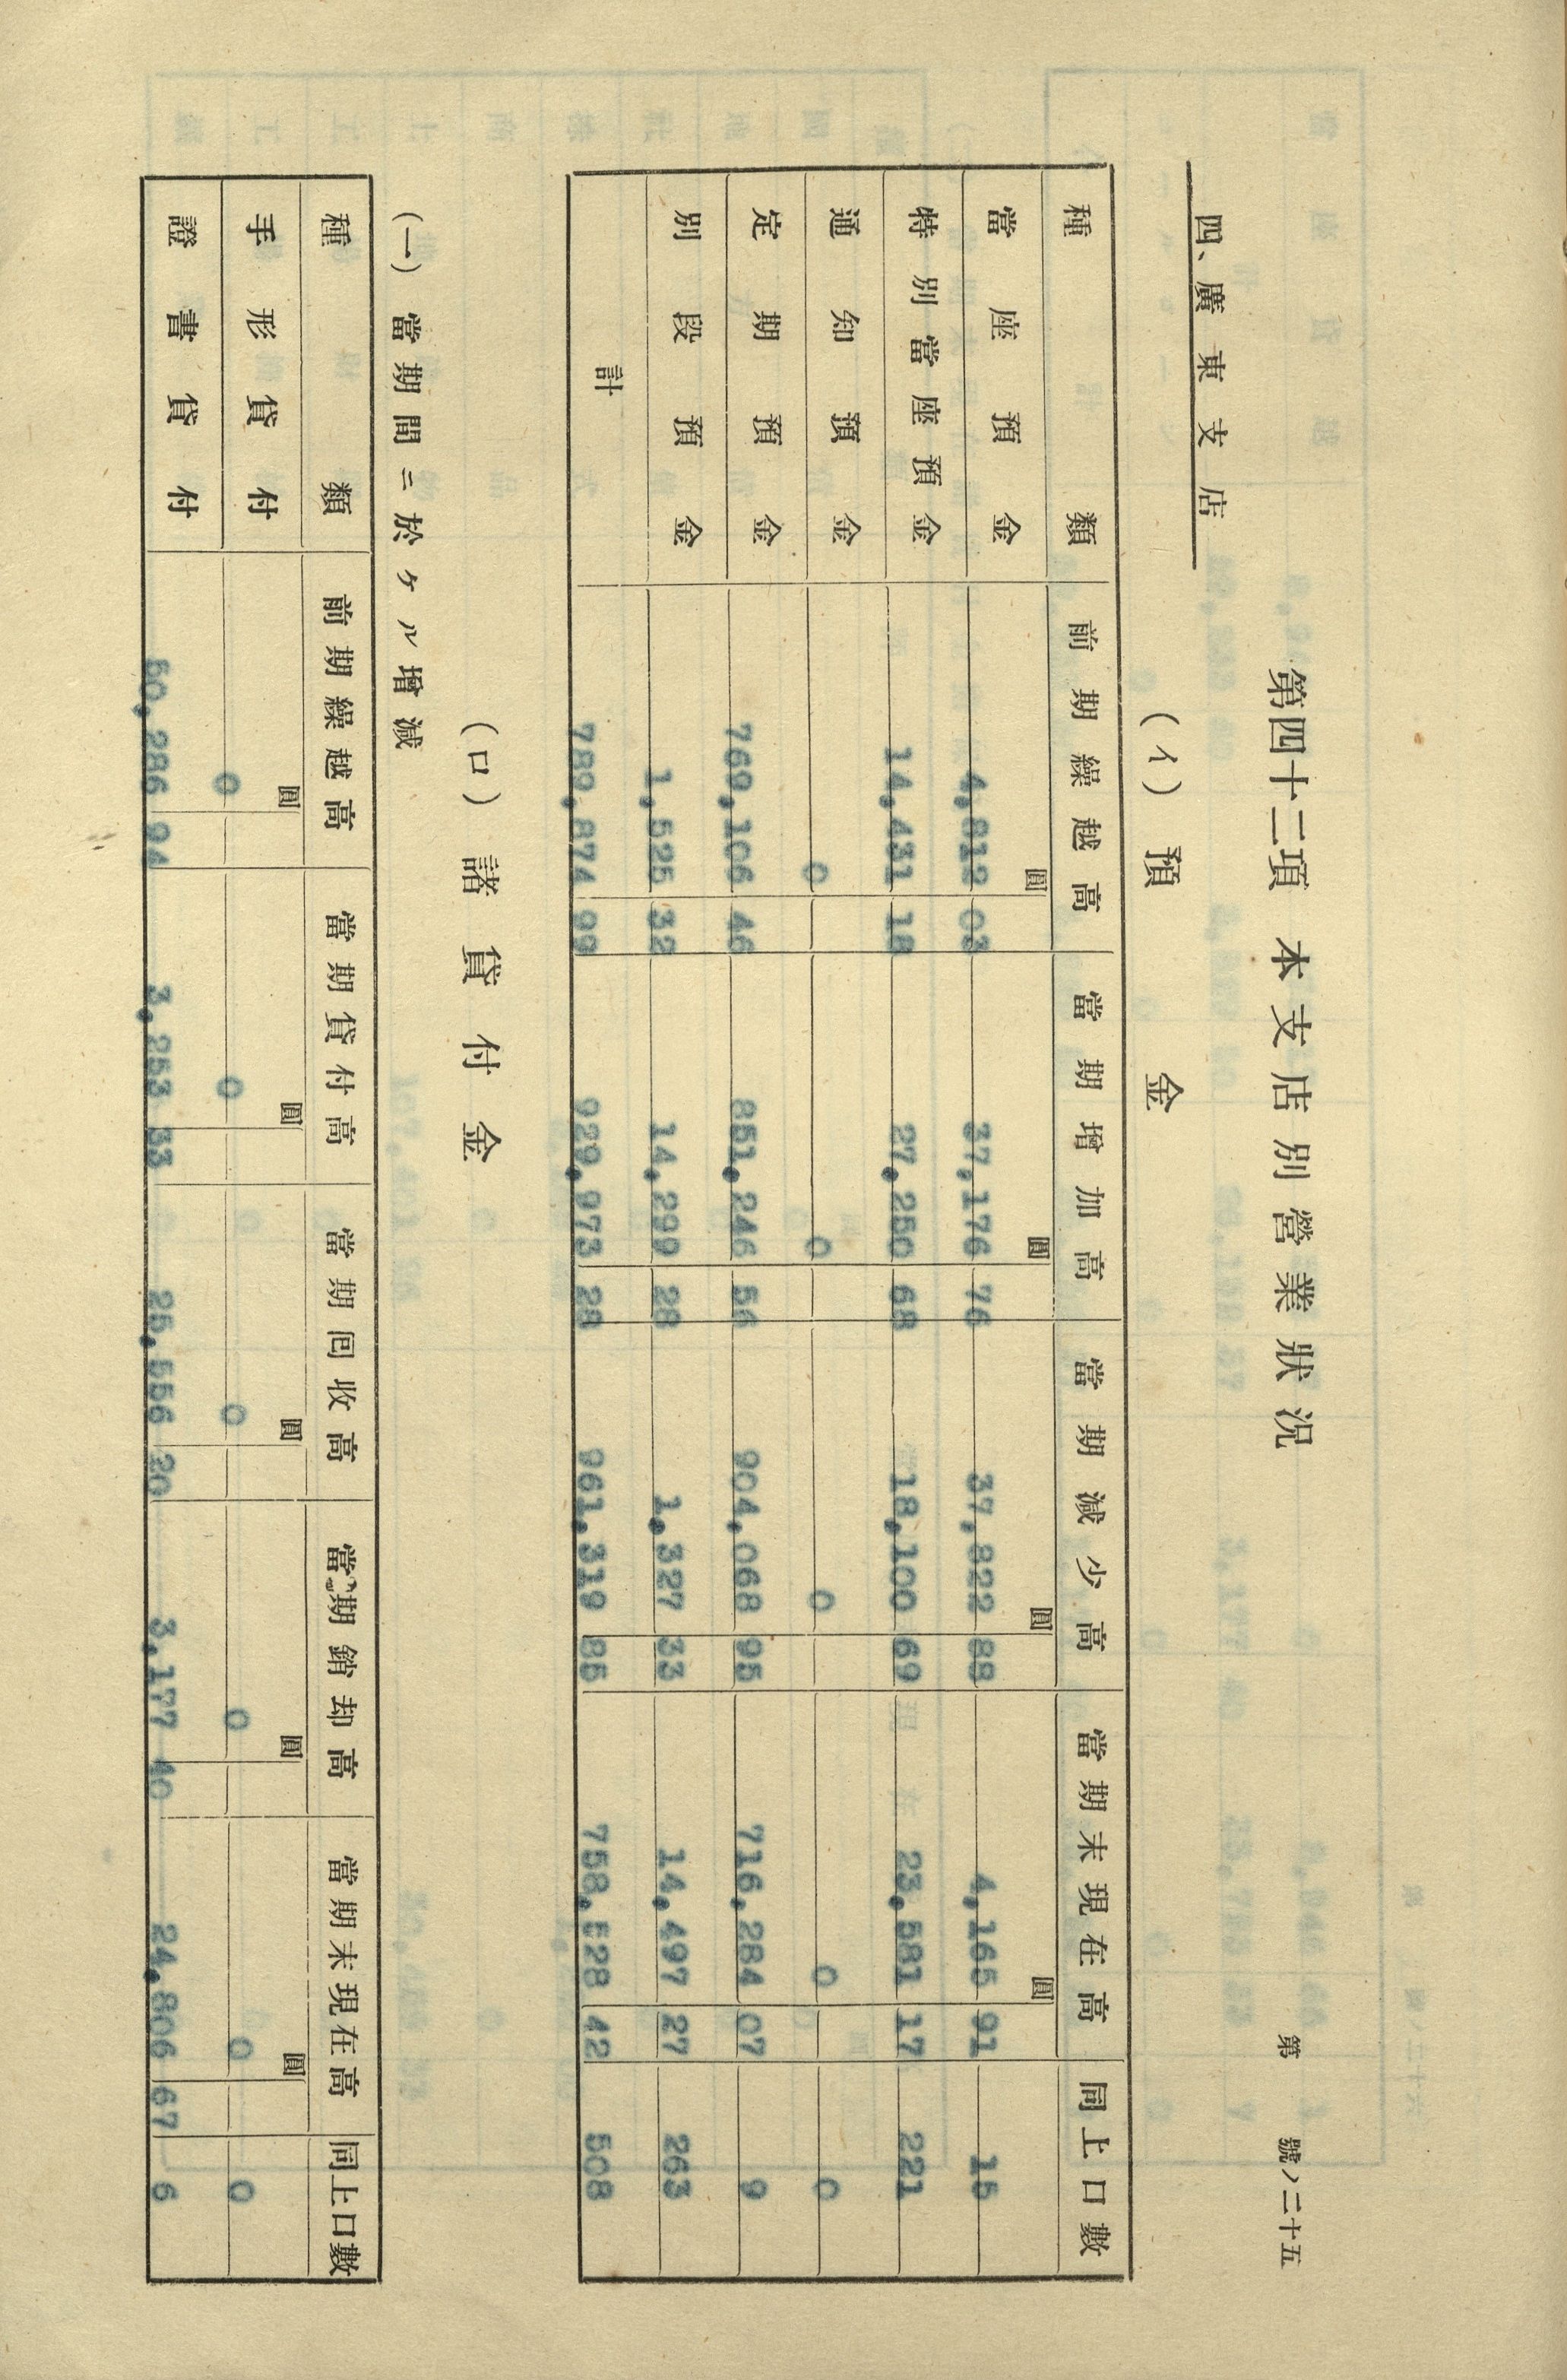 第四十二項 本支店別營業狀況
第 號ノ二十五
四、廣東支店
(イ) 預金
種類 前期繰越高 當期增加高 當期減少高 當期末現在高 同上口數
圓 圓 圓 圓
當座預金 4,812 03 37,176 76 37,822 88 4,165 91 15
特別當座預金 14,431 18 27,250 68 18,100 69 23,581 17 221
通知預金 0 0 0 0 0
定期預金 769,106 46 851,246 56 904,068 95 716,284 07 9
別段預金 1,525 32 14,299 28 1,327 33 14,497 27 263
計 789,874 99 929,973 28 961,319 85 758,528 42 508
(ロ) 諸貸付金
(一) 當期間ニ於ケル增減
種類 前期繰越高 當期貸付高 當期囘收高 當期銷却高 當期末現在高 同上口數
圓 圓 圓 圓 圓
手形貸付 0 0 0 0 0 0
證書貸付 50,286 94 3,253 33 25,556 20 3,177 40 24,806 67 6